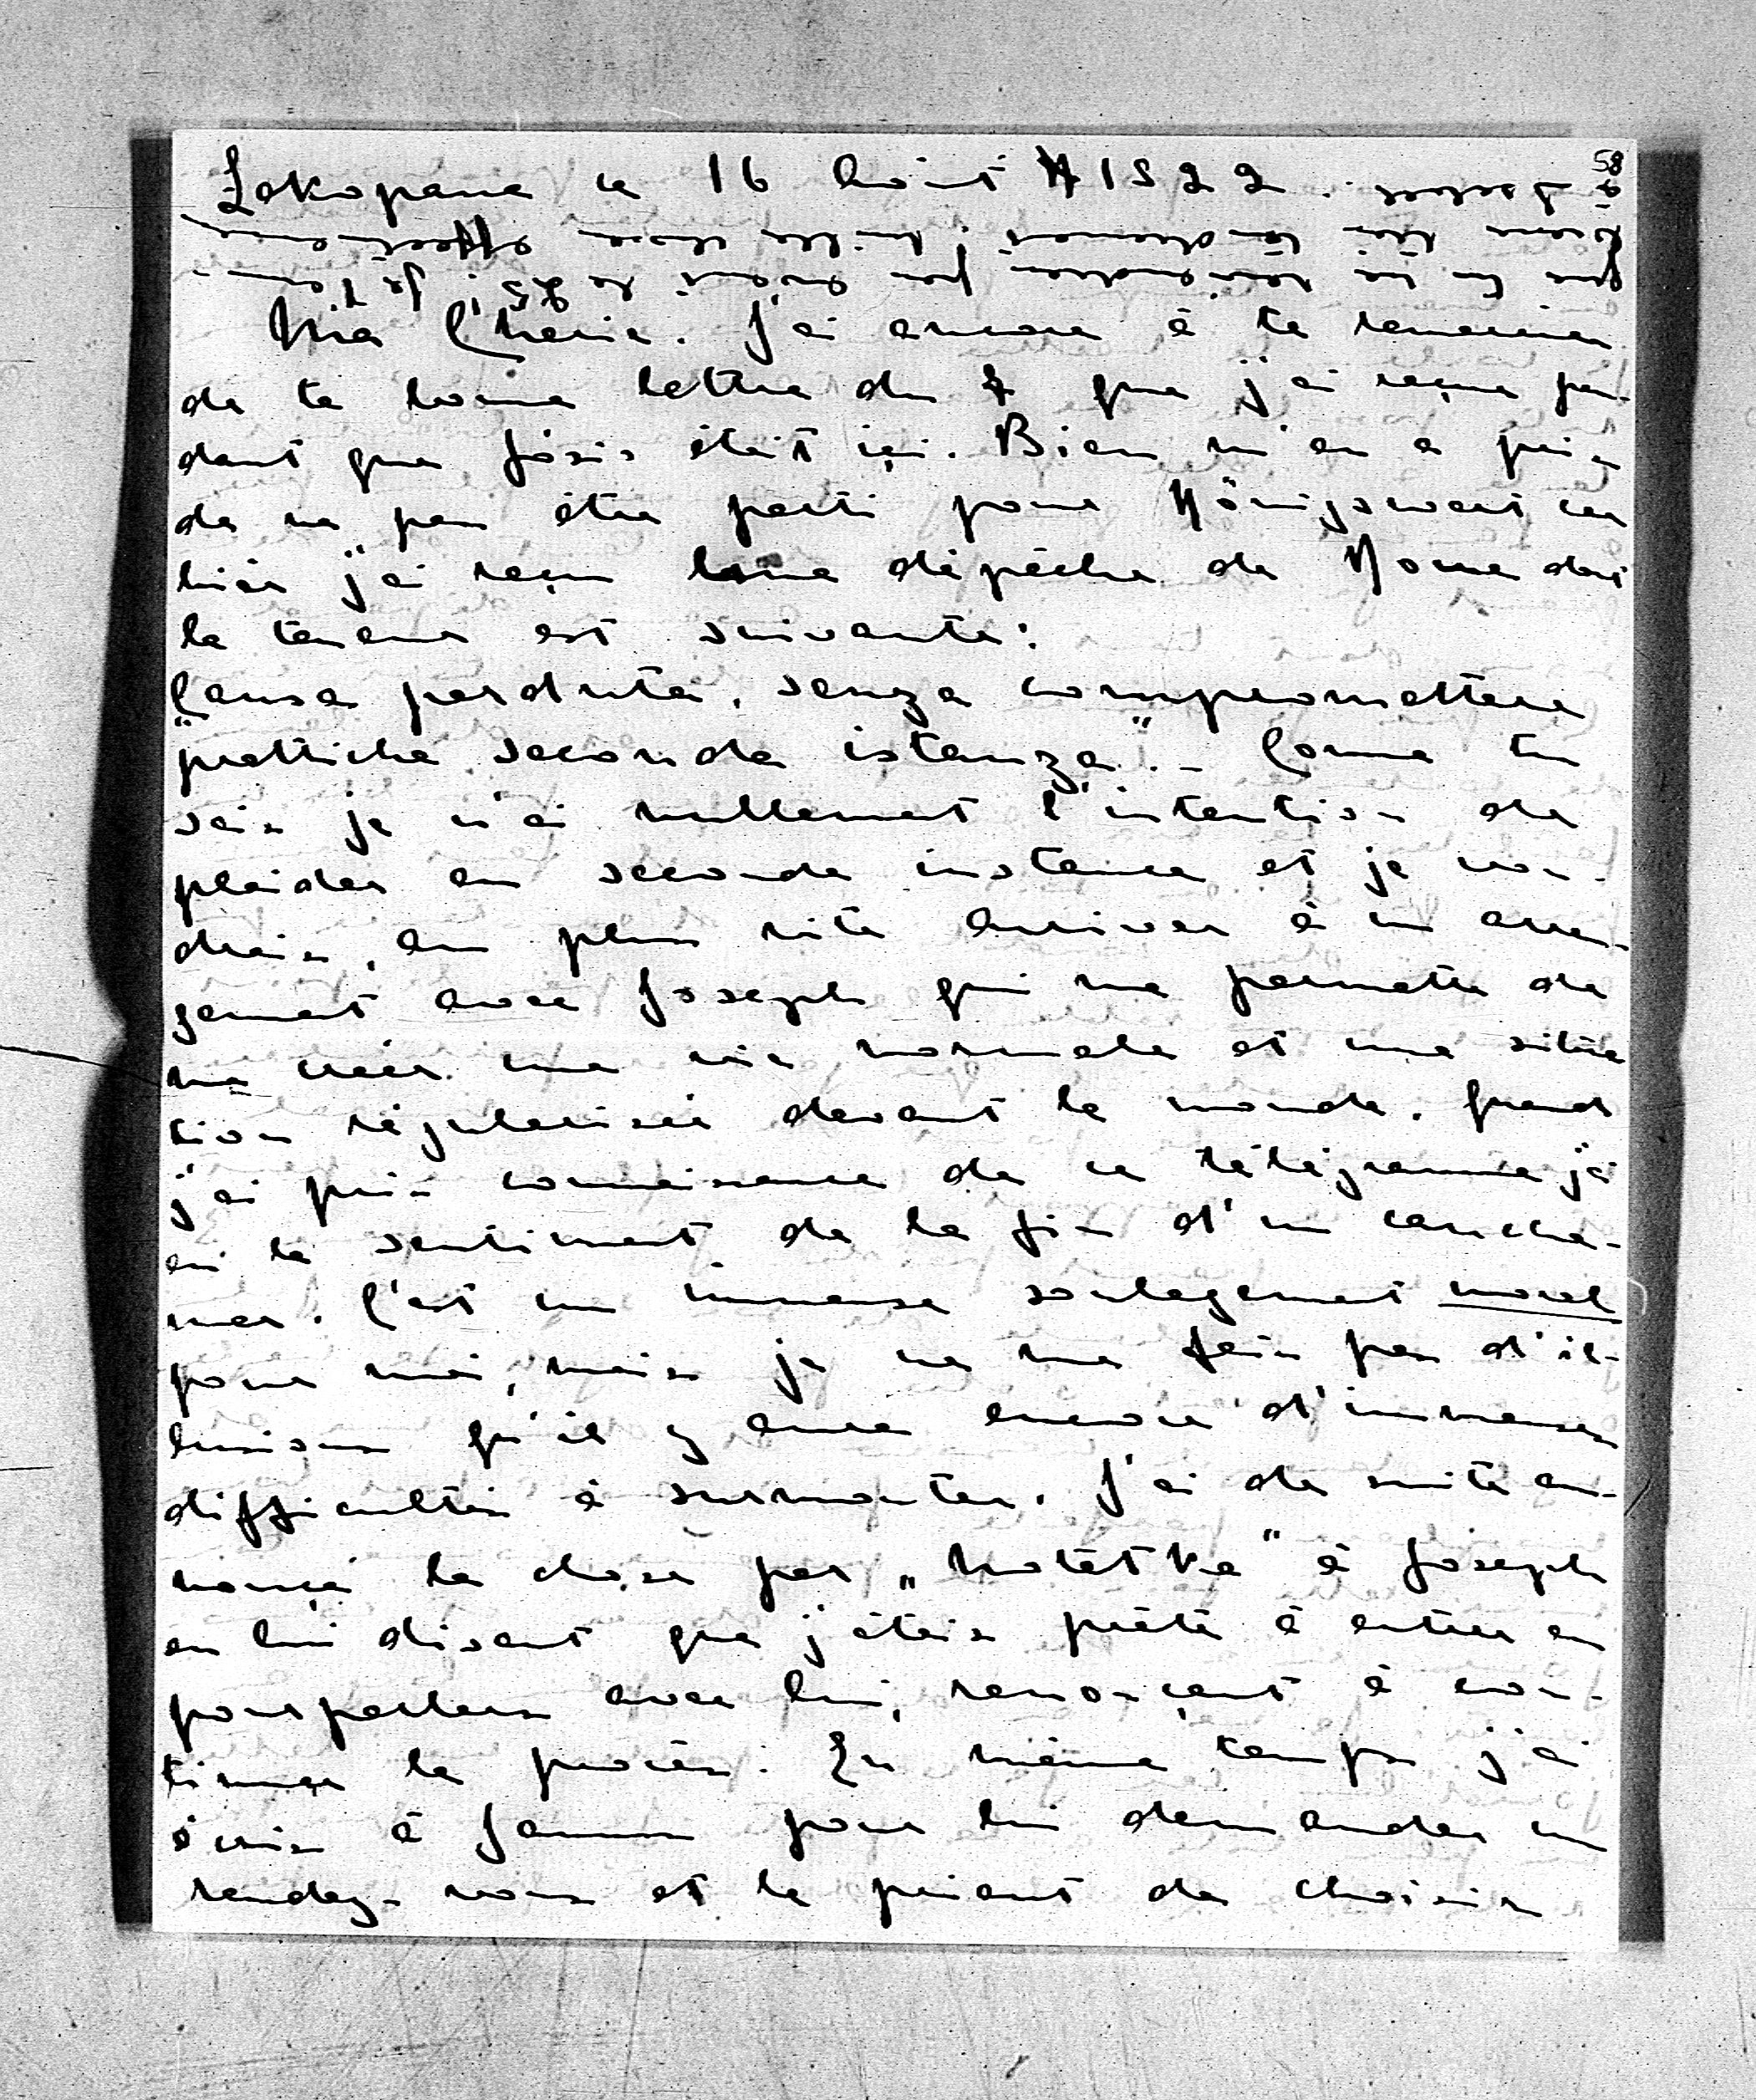 58
Zakopane ce 16 Août 1922.
Ma Chérie. J'ai encore à te remercier
de ta bonne lettre du 7 que j'ai reçue pen-
dant que Józio était içi. Bien m'en a pris
de ne pas être parti pour Königswart car
hier j'ai reçu une dépêche de Rome dont
la teneur est suivante:
"Causa perduta, senza compromettere
prattiche seconda istanza". – Come tu
sais je n'ai nullement l'intention de
plaider en seconde instance et je vou-
drais, au plus vite arriver à un arran-
gement avec Joseph qui me permette de
me créer une vie normale et une situa
tion régularisée devant le monde. Quand
j'ai pris connaissance de ce télégramme j'ai
eu le sentiment de la fin d'un cauche-
mar. C'est un immense soulagement moral
pour moi, mais je ne me fais pas d'il-
lusions qu'il y aura encore d'immenses
difficultés à surmonter. J'ai de suite an-
noncé la chose par à Joseph
en lui disant que j'étais prête à entrer en
pourparlers avec lui, renonçant à con-
tinuer le procès. En même temps j'ai
écris à pour lui demander un
rendez-vous et le priant de choisir